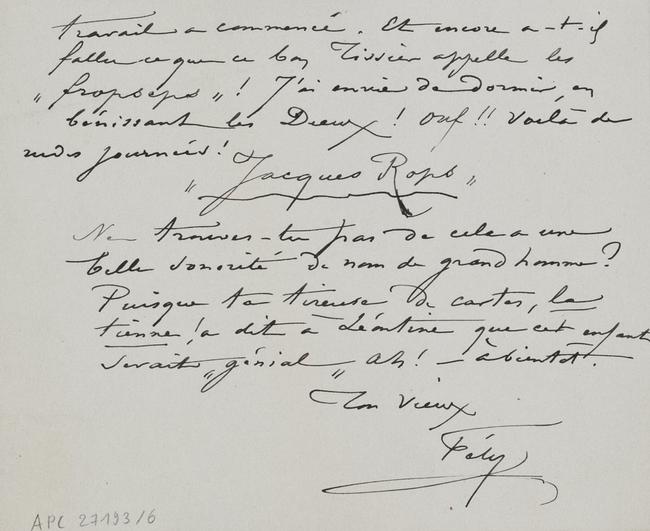 travail a commencé. Et encore a-t-il
fallu ce que ce bon Tissier appelle les
„ fropseps „! J'ai envie de dormir, en
bénissant les Dieux! Ouf!! Voilà de
rudes journées!
„ Jacques Rops „
Ne trouves-tu pas de cela a une
belle sonorité de nom de grand homme?
Puisque ta tireuse de cartes, la
tienne! a dit à Léontine que cet enfant
serait „génial„ Ah! – à bientôt.
Ton vieux
Fély
APC 27193/6